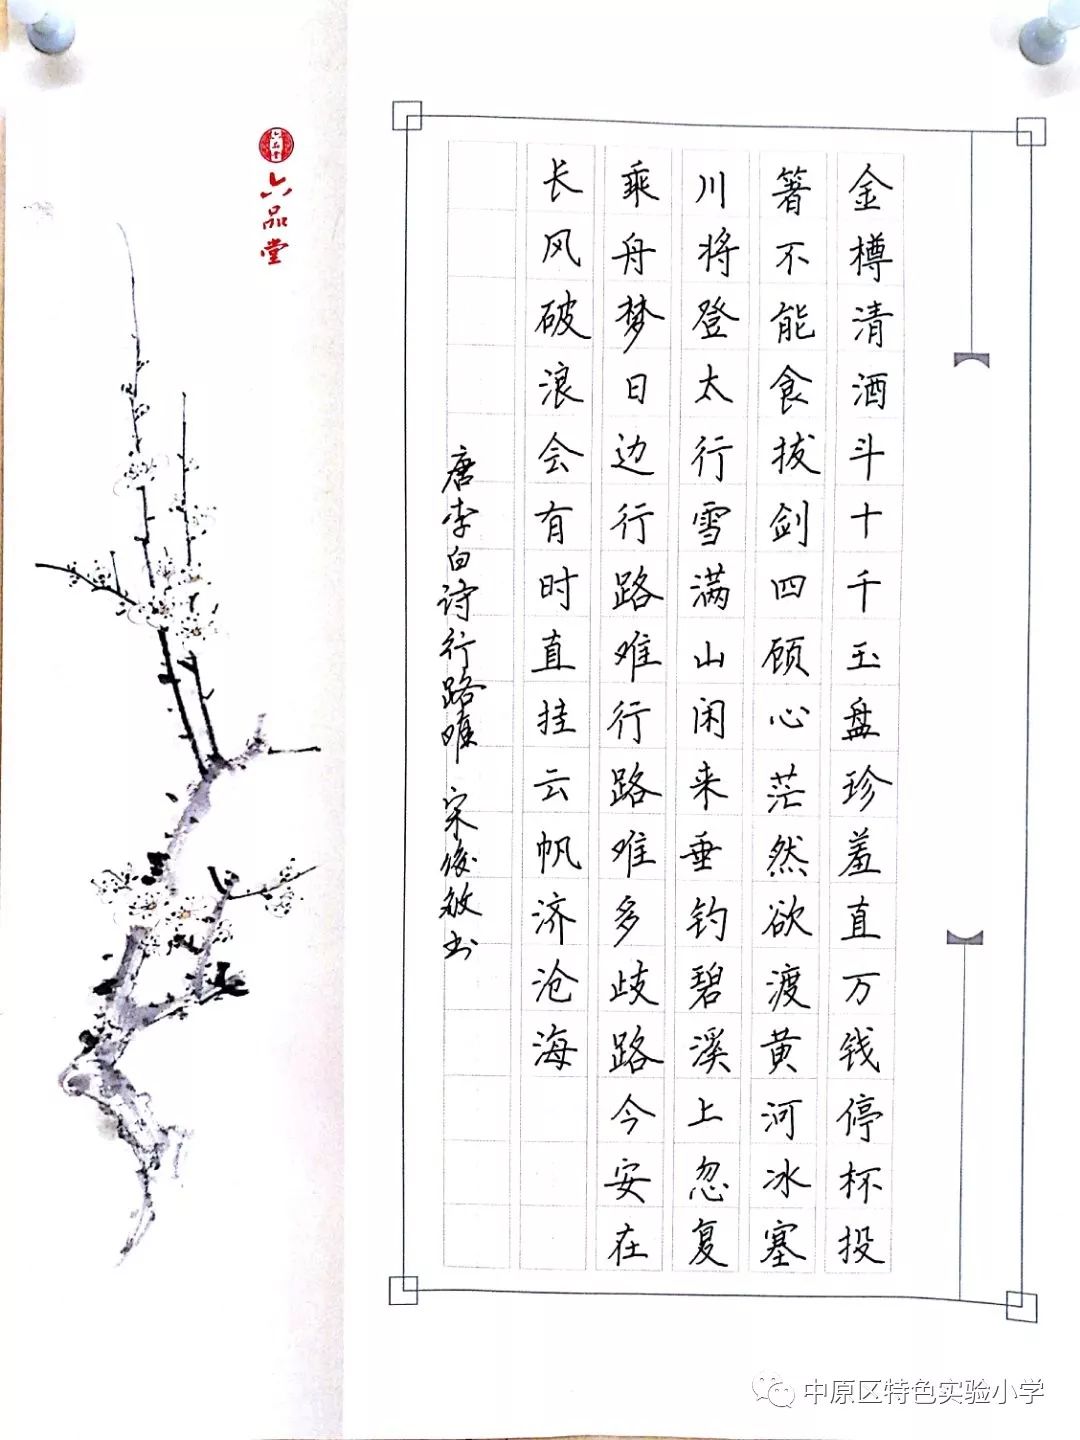 金樽清酒斗十千玉盘珍羞直万钱停杯投
箸不能食拔剑四顾心茫然欲渡黄河冰塞
川将登太行雪满山闲来垂钓碧溪上忽复
乘舟梦日边行路难行路难多歧路今安在
长风破浪会有时直挂云帆济沧海
唐李白诗行路难 宋俊敏书
六品堂
六品堂
中原区特色实验小学